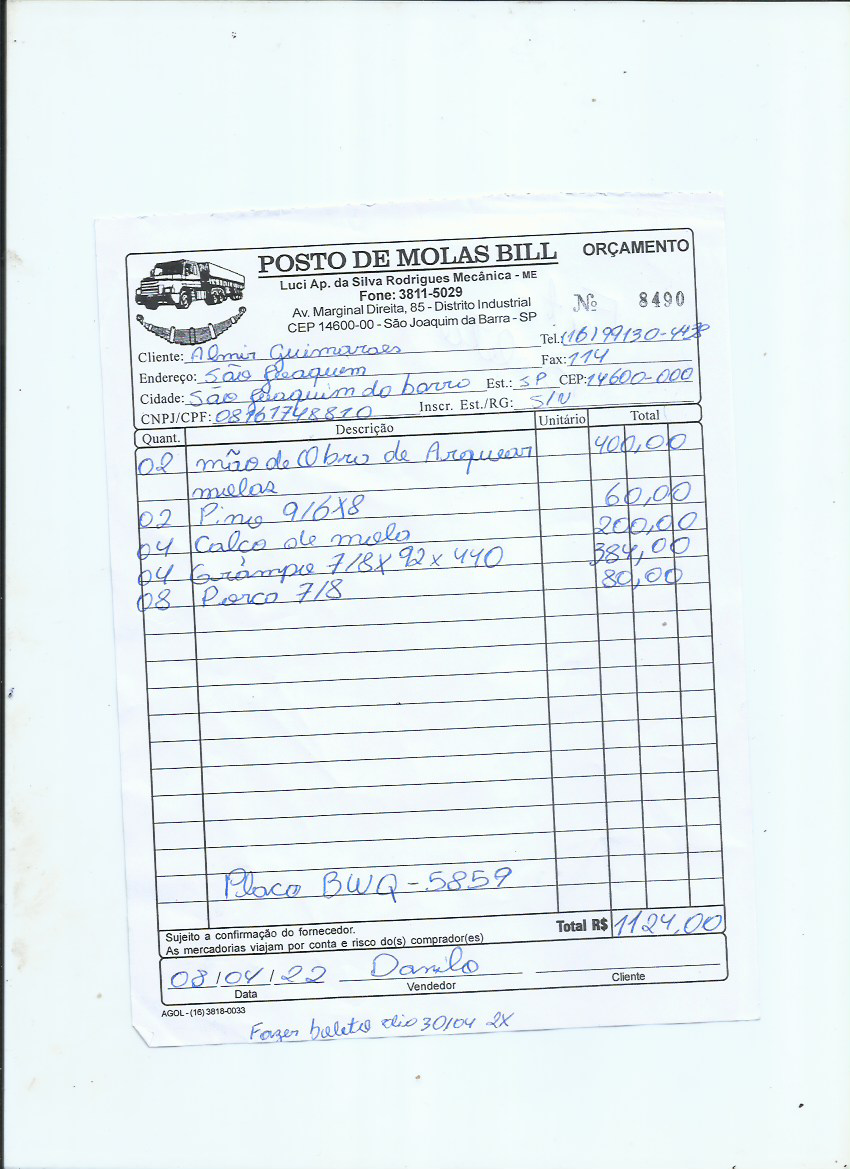 POSTO DE MOLAS BILL
ORÇAMENTO
Luci Ap. da Silva Rodrigues Mecânica - ME
Fone: 3811-5029
Av. Marginal Direita, 85 - Distrito Industrial
CEP 14600-00 - São Joaquim da Barra - SP
Nº 8490
Cliente: Almir Guimaraes Tel.: (16) 99130-4438
Endereço: São Joaquim Fax: 114
Cidade: São Joaquim da barra Est.: SP CEP: 14600-000
CNPJ/CPF: 08761748810 Inscr. Est./RG: S/N
Quant. Descrição Unitário Total
02 mão de Obra de Arquear 400,00
molas
02 Pino 9/6X8 60,00
04 Calço de mola 200,00
04 Grampo 7/8X92x440 384,00
08 Porca 7/8 80,00
Placa BWQ-5859
Sujeito a confirmação do fornecedor.
As mercadorias viajam por conta e risco do(s) comprador(es)
Total R$ 1124,00
08/04/22 Danilo
Data Vendedor Cliente
AGOL - (16) 3818-0033
Fazer boleto dia 30/04 2X